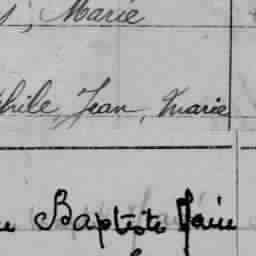 Marie
phile, Jean, Marie
Baptiste